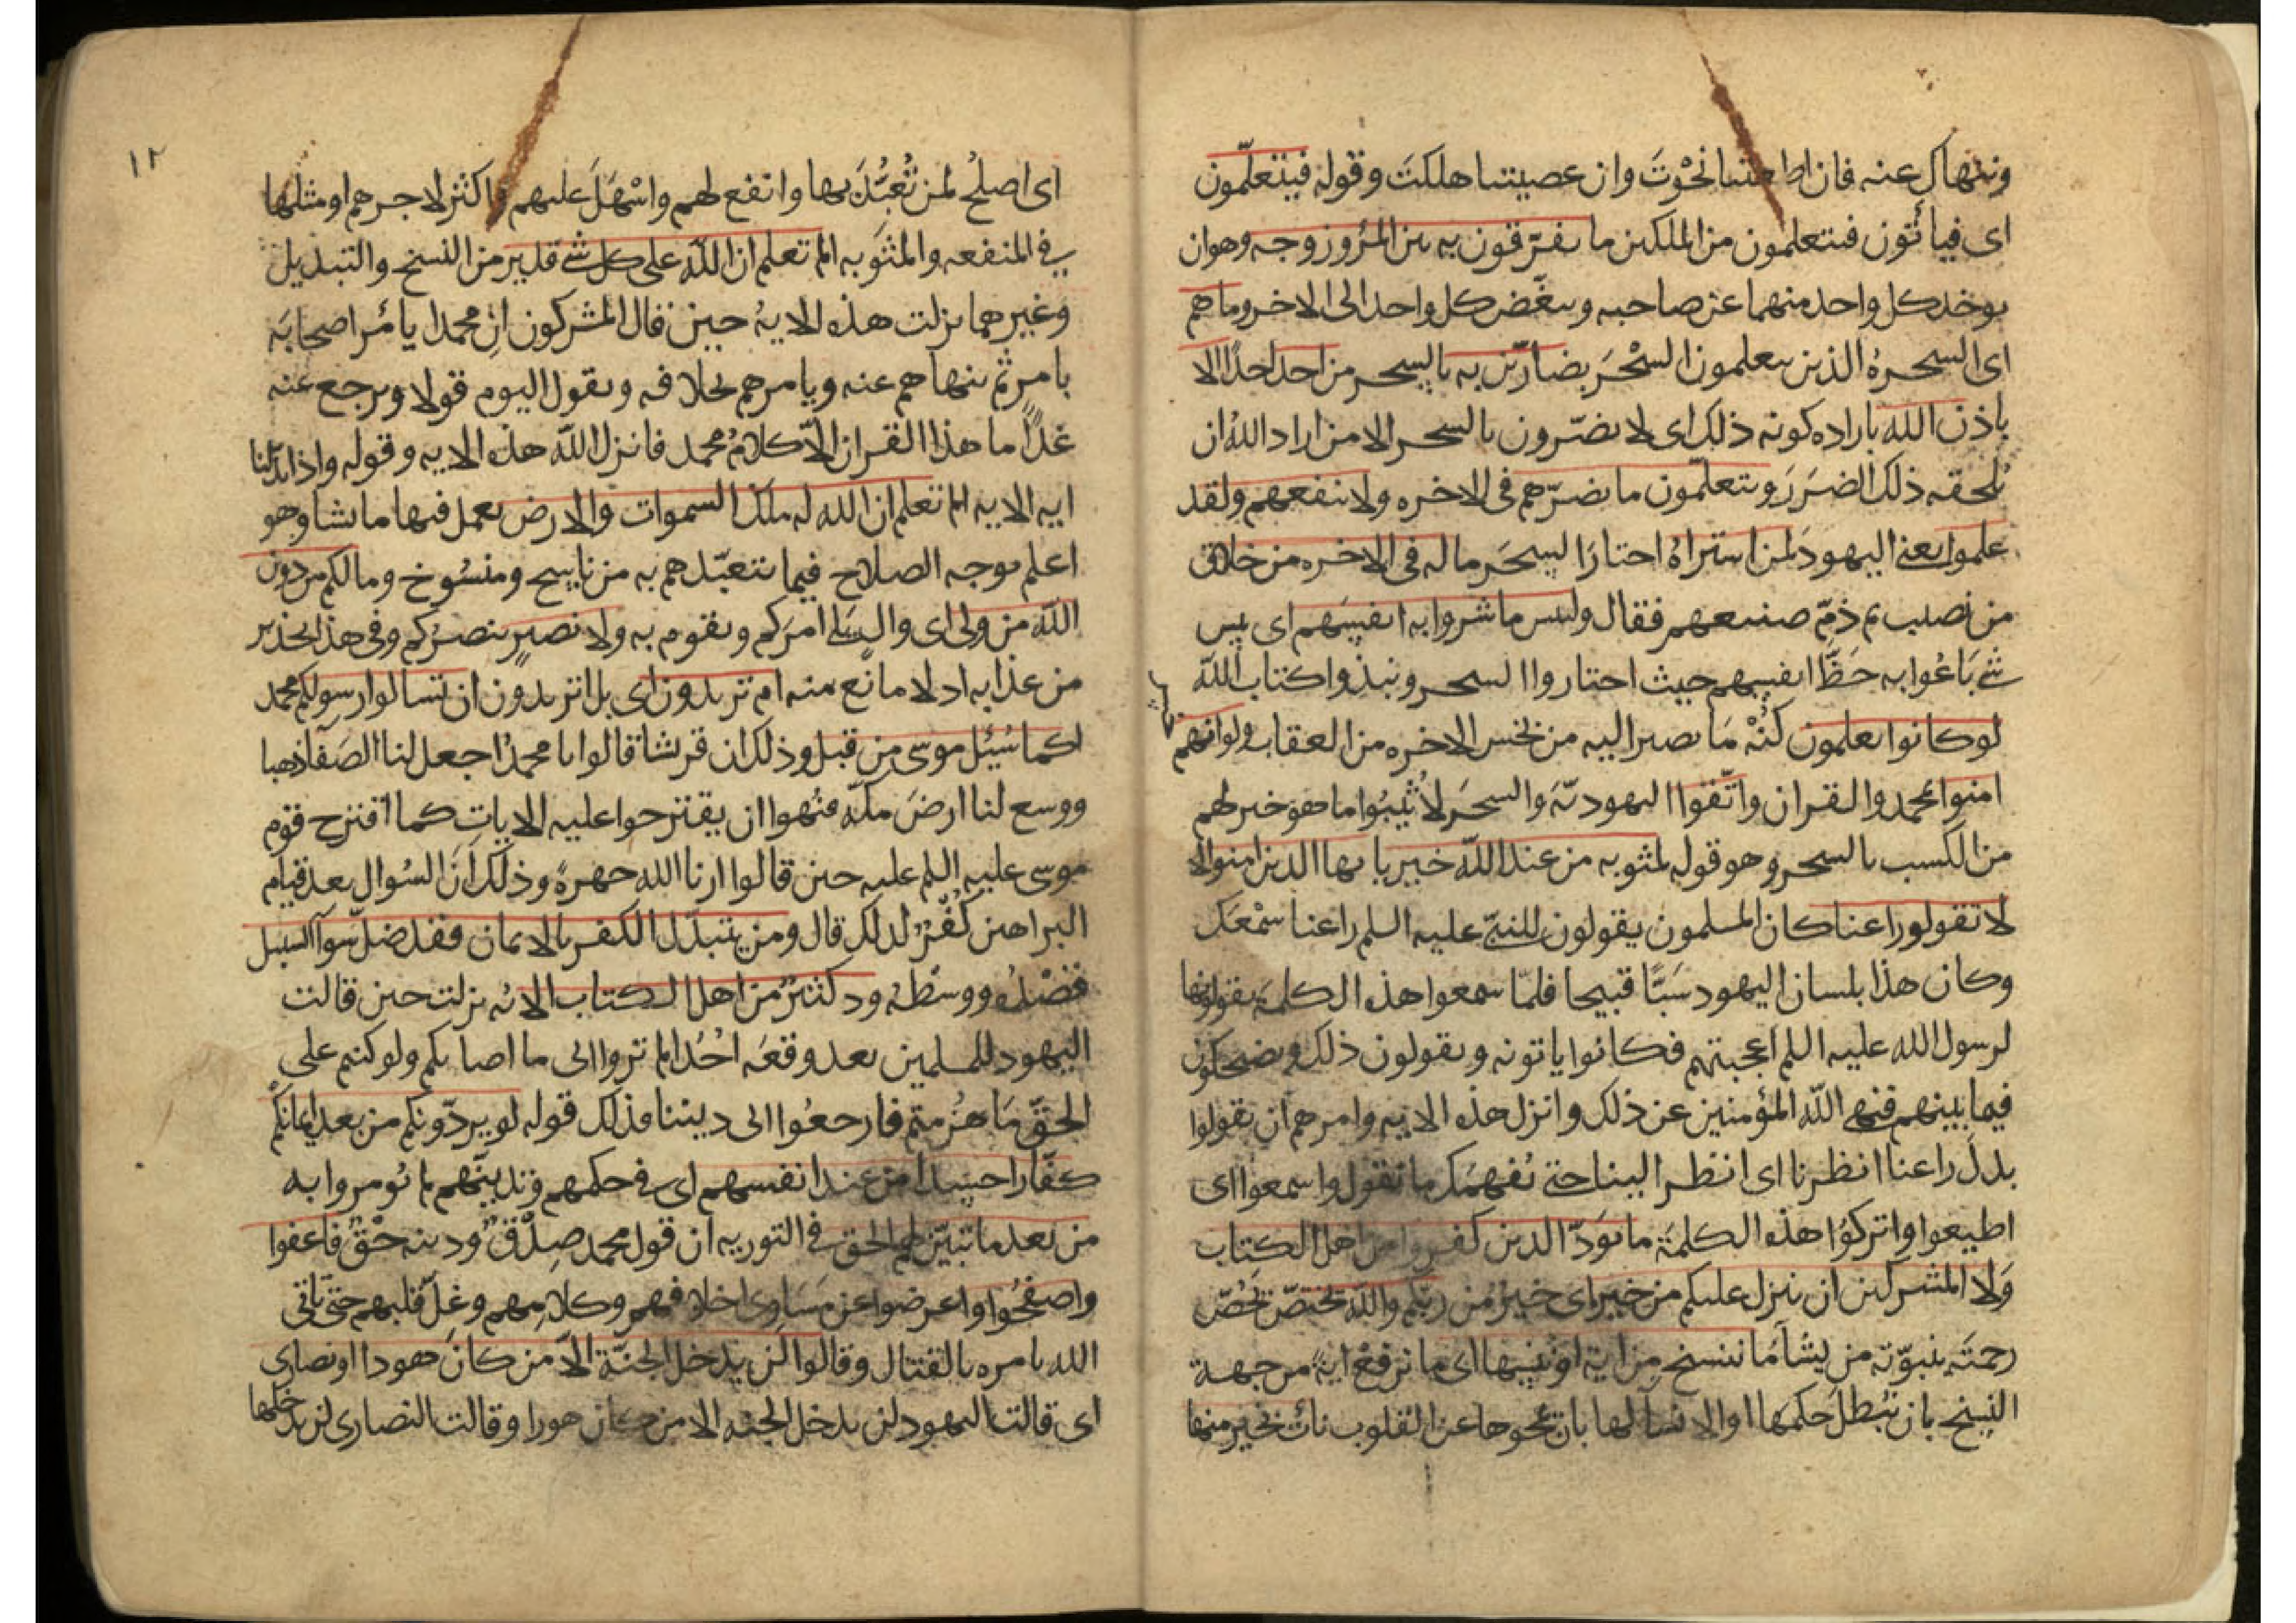 وننهاك عنه فان اطعتنا نجوت وان عصيتنا هلكت وقوله فيتعلمون
اى فيأتون فيتعلمون من الملكين ما يفرّقون به بين المرؤ وزوجه وهو ان
يوخذ كل واحد منهما عن صاحبه ويبغّض كل واحد الى الاخر وما هم
اى السحرهُ الذين يتعلمون السحْرَ بضارّين به بالسحر من احد احدًا الا
باذن الله باراده كونه ذلك اى لا يضرّون بالسحر الا من اراد اللهُ ان
يُلحقه ذلك الضرَرَ ويتعلّمون ما يضرّهم فى الاخره ولا ينفعهم ولقد
علموا يعنى اليهود لمن اشتراهُ اختارَ السحرَ ما له فى الاخره من خلاق
من نصيب ثم ذمّ صنيعهم فقال ولبيس ما شروا به انفسهم اى بيس
شى بَاعُوا به حَظّ انفسهم حيث اختاروا السحر ونبذوا كتاب الله
لو كانوا يعلمون كُنْهَ مَا يصير اليه من بخس الاخره من العقاب ولو انهم
امنوا بمحمد والقران واتّقوا اليهوديّه والسحرَ لاُثيبُوا ما هو خير لهم
من الكسب بالسحر وهو قوله لمثوبه من عند اللّه خير يا يها الذين امنوا لا
لا تقولو راعنا كان المسلمون يقولون للنبىّ عليه السلم راعنا سمْعَك
وكان هذا بلسان اليهود سَبًّا قبيحا فلمّا سمعوا هذه الكلمة يقولونها
لرسول الله عليه السلم اعجبتهم فكانوا ياتونه ويقولون ذلك ويضحكون
فيما بينهم فنهى اللّه المؤمنين عن ذلك وانزل هذه الايه وامرهم ان يقولوا
بدل راعنا انظرنا اى انظر الينا حتى نُفهمَك ما نقول واسمعوا اى
اطيعوا واتركوُا هذه الكلمَة ما يَودّ الذين كفروا من اهل الكتاب
وَلا المشركين ان ينزل عليكم من خير اى خيرٌ من ربّكم واللّه يختصّ يَخُصّ
رحمتَه بنبوّته من يشا مَا ننسخ من اية او ننسها اى ما نرفع ايةً من جهة
النسخ بان نُبْطلَ حكمها او الانسا لها بان نمحوها عن القلوب نات بخير منها
١٢
اى اصلحُ لمن تُعُبّدَ بها وانفع لهم واسْهَلَ عليهم واكثر لاجرهم او مثلها
فى المنفعه والمثوَبه الم تعلم ان اللّه على كل شى قدير من النسخ والتبديل
وغيرهما نزلت هذه الايهُ حين قال المشركون انّ محمدا يأمر اصحابَه
بامر ثم ينهاهم عنه ويامرهم بخلافه ويقول اليوم قولا ويرجع عنه
غدًا ما هذا القران الاّ كلامُ محمد فانزل اللّه هذه الايه وقوله واذا بدّلنا
ايه الايه الم تعلم ان الله له ملك السموات والارض يعمل فيها ما يشا وهو
اعلم بوجه الصلاح فيما يتعبّدهم به من ناسخ ومنسُوخ وما لكم من دون
اللّه من ولى اى والٍ يلى امرَكم ويقوم به ولا نصيرٍ ينصرُكم وفى هذا تحذير
من عذابه اد لا مانع منه ام تريدون اى بل اتريدون ان تسالوا رسولكم محمد
كما سُئِل موسى من قبل وذلك ان قريشا قالوا يا محمدُ اجعل لنا الصَفَا ذهبا
ووسع لنا ارضَ مكّه فنهوا ان يقترحوا عليه الايات كما اقترح قوم
موسى عليه السلم عليه حين قالوا ارنا الله جهرةً وذلك انّ السُوال بعد قيام
البراهين كُفْرٌ لذلك قال ومن يتبدّل الكفر بالايمان فقد ضلّ سَوآ السبيل
قَصْدَهُ ووسَطَهُ ود كثيرٌ من اهل الكتاب الايه نزلت حين قالت
اليهود للمسلمين بعد وقعَه اُحُد الم تروا الى ما اصابكم ولو كنتم على
الحقّ مَا هُزِمتم فارجعُوا الى ديننا فذلك قوله لو يردّونكم من بعد ايمانكم
كفّارا حسَدا من عند انفسهم اى فى حكمهم وتديّنهم ما لم يُومروا به
من بعد ما تبيّن لهم الحق فى التوريه ان قول محمد صِدْقٌ ودينه حْقٌ فاعفوا
واصفحُوا واعرضوا عن مَسَاوى اخلاقهم وكلامهم وغِلّ قلبهم حتى ياتى
الله بامره بالقتال وقالوا لن يدخل الجنّة الاّ من كانَ هودا او نصارى
اى قالت اليهود لن يدخل الجنه الا من كان هودا وقالت النصارى لن يدخلها